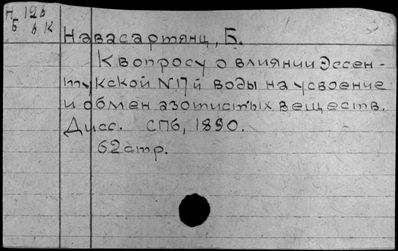 П 126
Б 6 К
Навасартянц, Б.
К вопросу о влиянии Эссен-
тукской N17й воды на усвоение
и обмен азотистых веществ.
Дисс. СПб, 1890.
62 стр.